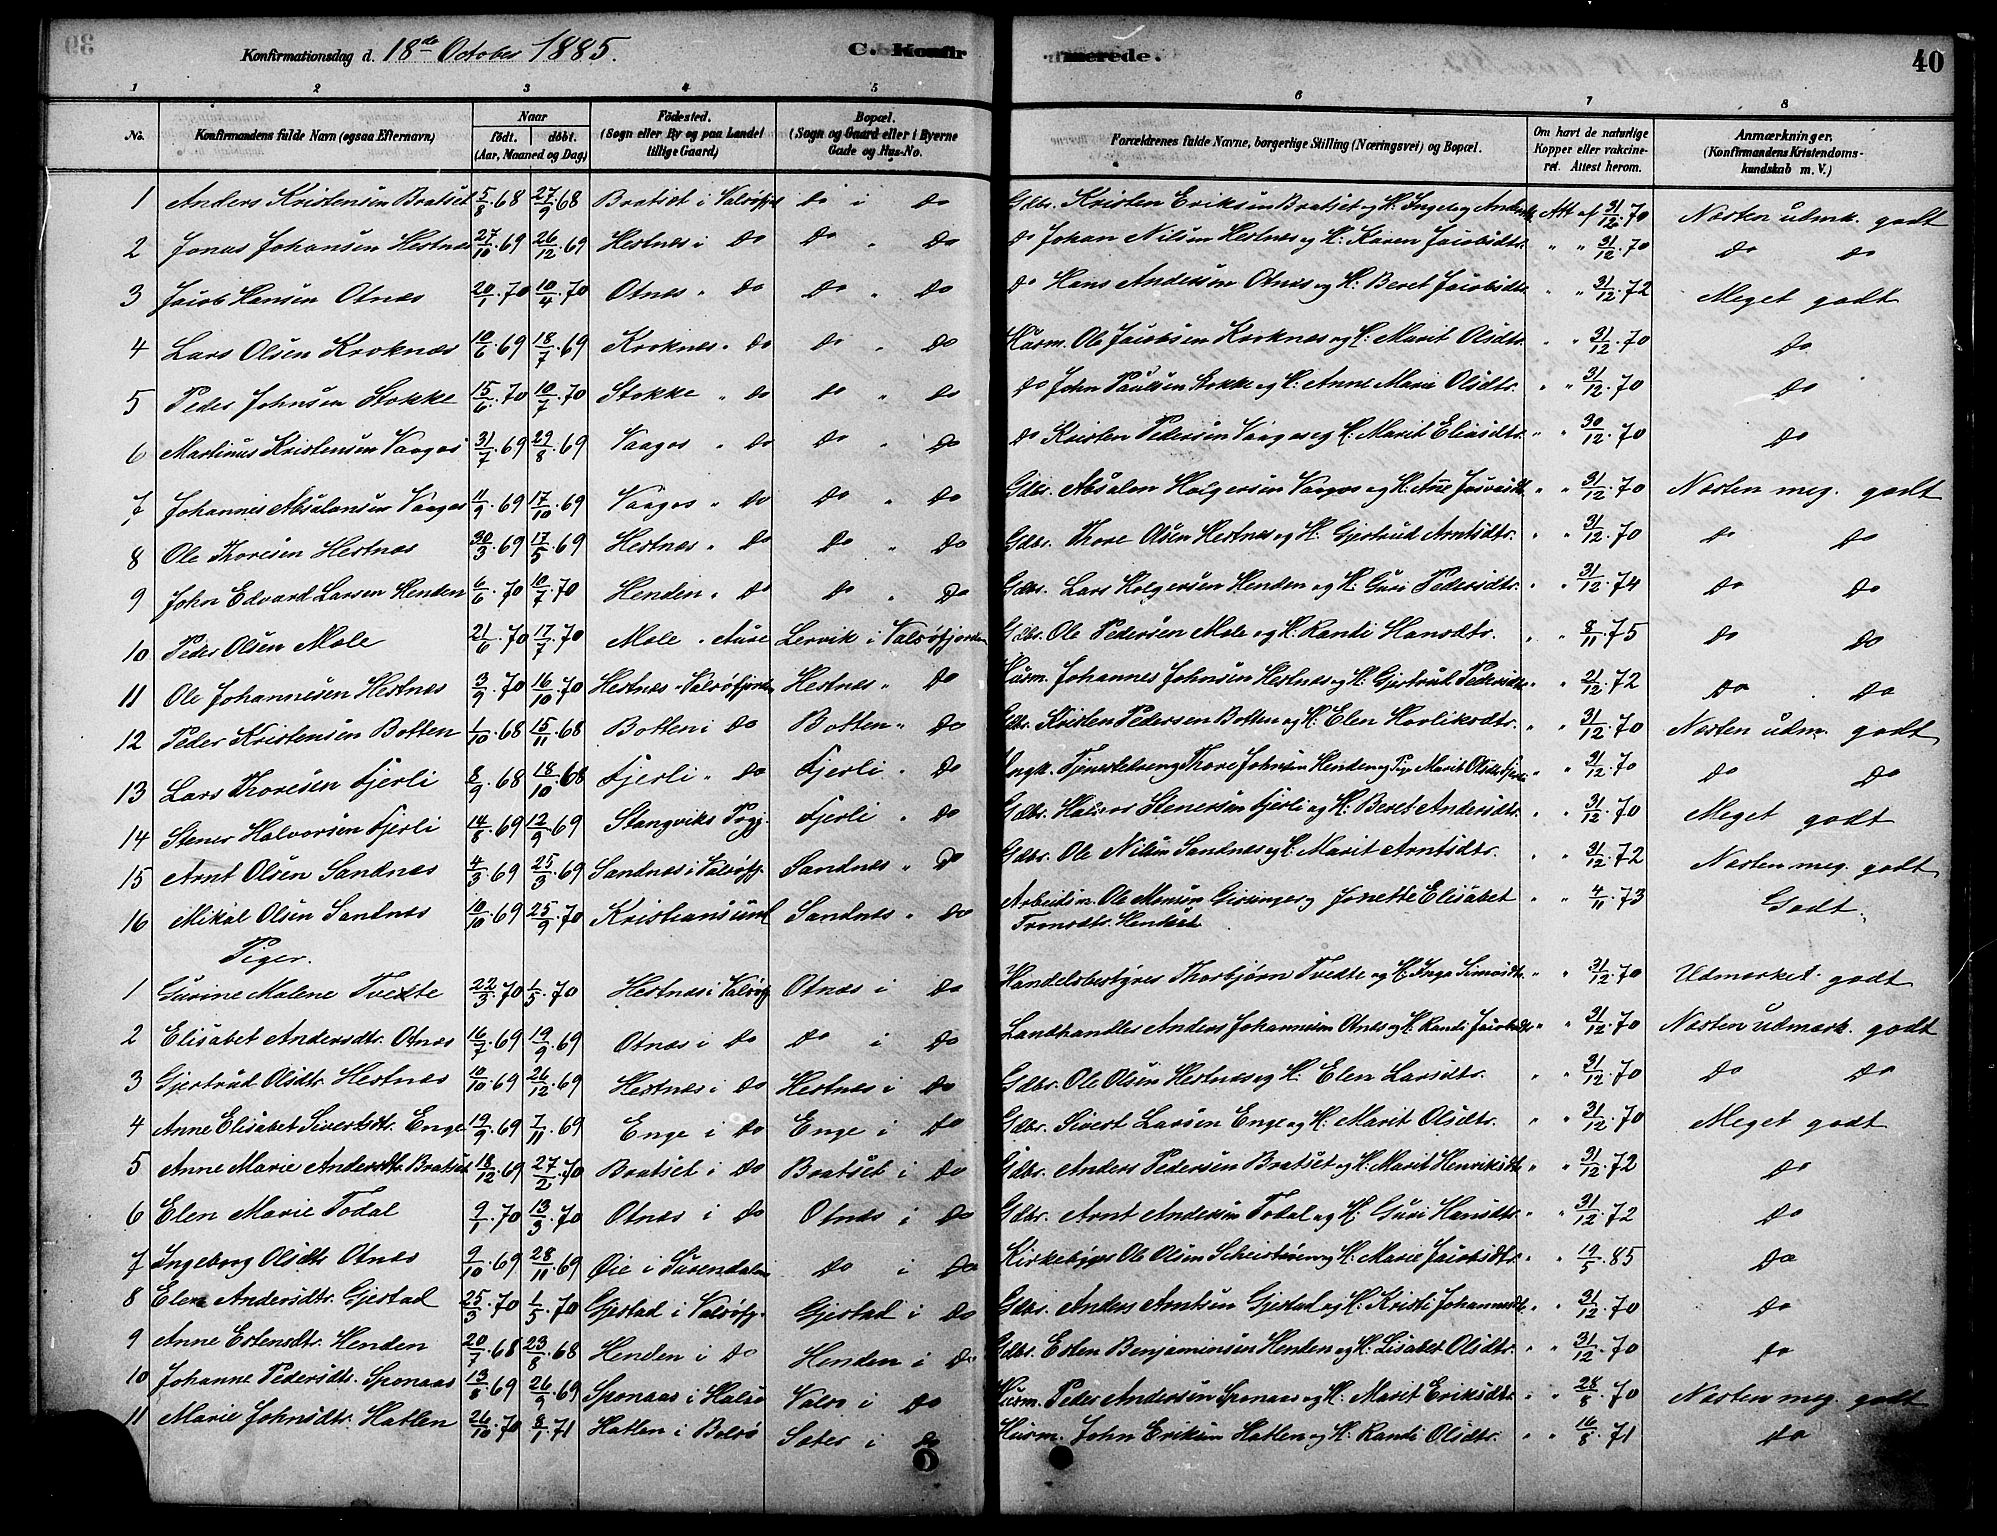 39
Konfirmationsdag d. 18de October 1885. C. Konfirmerede. 40
1 2 3 4 5 6 7 8
No. Konfirmandens fulde Navn (ogsaa Efternavn) Naar født. døbt. (Aar, Maaned og Dag) Fødested. (Sogn eller By og paa Landet tillige Gaard) Bopæl. (Sogn og Gaard eller i Byerne Gade og Hus-No. Forældrenes fulde Navne, borgerlige Stilling (Næringsvei) og Bopæl. Om havt de naturlige Kopper eller vakcineret. Attest herom. Anmærkninger. (Konfirmandens Kristendomskundskab m. V.)
1 Anders Kristensen Bratset 5/8 68 27/9 68 Bratset i Valsøfj do i do Gdbr. Kristen Eriksen Bratset og H. Ingeborg Att af 31/12 70 Næsten udmk. godt
2 Jonas Johansen Hestnes 27/10 69 26/12 69 Hestnes i do do " do do Johan Nilsen Hestnes og H. Karen Jacobsdtr. " " 31/12 70 do do
3 Jacob Hansen Otnes 20/1 70 10/4 70 Otnes " do do " do do Hans Andersen Otnes og H. Beret Jacobsdtr. " " 31/12 72 Meget godt
4 Lars Olsen Kroknes 10/6 69 18/7 69 Kroknes " do do " do Husm. Ole Jacobsen Kroknes og H. Marit Olsdtr. " " 31/12 70 do
5 Peder Johnsen Stokke 15/6 70 10/7 70 Stokke " do do " do do John Paulsen Stokke og H. Anne Marie Olsdtr. " " 31/12 70 do
6 Martinus Kristensen Vaagos 31/7 69 29/8 69 Vaagos " do do " do do Kristen Pedersen Vaagos og H. Marit Eliasdtr. " " 30/12 70 do
7 Johannes Absalonsen Vaagos 11/9 69 17/10 69 Vaagos " do do " do Gdbr. Absalon Holgersen Vaagos og H. Ane " " 31/12 70 Næsten meg. godt
8 Ole Thoresen Hestnes 30/3 69 17/5 69 Hestnes " do do " do Gdbr. Thore Olsen Hestnes og H. Gjertrud Arntsdtr. " " 31/12 70 do do
9 John Edvard Larsen Henden 6/6 70 10/7 70 Henden " do do " do Gdbr. Lars Holgersen Henden og H. Guri Pedersdtr. " " 31/12 74 do do
10 Peder Olsen Mole 21/6 70 17/7 70 Mole " Aure Lervik i Valsøfjorden Gdbr. Ole Pedersen Mole og H. Randi Hansdtr. " " 8/11 75 do do
11 Ole Johannesen Hestnes 3/9 70 16/10 70 Hestnes " Valsøfjorden Hestnes " do Husm. Johannes Johnsen Hestnes og H. Gjertrud Pedersdtr " " 21/12 72 do do
12 Peder Kristensen Botten 1/10 68 15/11 68 Botten i do Botten " do Gdbr. Kristen Pedersen Botten og H. Elen " " 31/12 70 Næsten udm. godt
13 Lars Thoresen Fjerli 8/9 68 18/10 68 Fjerli " do Fjerli " do Ungk. Tjenestedreng Thore Johnsen Henden og Pige Marit Olsdtr " " 31/12 70 do do
14 Stener Halvorsen Fjerli 14/8 69 12/9 69 Stangviks Prgj. Fjerli " do Gdbr. Halvor Stenersen Fjerli og H. Beret Andersdtr. " " 31/12 70 Meget godt
15 Arnt Olsen Sandnes 4/3 69 25/3 69 Sandnes i Valsøfj. Sandnes " do Gdbr. Ole Nilsen Sandnes og H. Marit Arntsdtr. " " 31/12 72 Næsten meg. godt
16 Mikal Olsen Sandnes 10/10 69 25/9 70 Kristiansund Sandnes " do Arbeidsm. Ole Monsen og Jonette Elisabet " " 4/11 73 Godt.
Piger.
1 Gurine Malene Tvedte 22/3 70 1/5 70 Hestnes i Valsøfj Otnes i do Handelsbestyrer Thorbjørn Tvedte og H. Inga " " 31/12 70 Udmærket godt
2 Elisabet Andersdtr. Otnes 16/7 69 19/9 69 Otnes i do do i do Landhandler Anders Johannesen Otnes og H. Randi Jacobsdtr " " 31/12 70 Næsten udmærk. godt
3 Gjertrud Olsdtr. Hestnes 10/10 69 26/12 69 Hestnes i do Hestnes i do Gdbr. Ole Olsen Hestnes og H. Elen Larsdtr. " " 31/12 70 do do
4 Anne Elisabet Sivertsdtr. Enge 19/9 69 7/11 69 Enge i do Enge i do Gdbr. Sivert Larsen Enge og H. Marit Olsdtr. " " 31/12 70 Meget godt
5 Anne Marie Andersdtr. Bratset 18/12 69 27/2 70 Bratset i do Bratset i do Gdbr. Anders Pedersen Bratset og H. Marit Henriksdtr " " 31/12 72 do
6 Elen Marie Todal 9/1 70 13/3 70 Otnes i do Otnes i do Gdbr. Arnt Andersen Todal og H. Guri Hansdtr. " " 31/12 72 do
7 Ingeborg Olsdtr. Otnes 9/10 69 28/11 69 Øie i Surendalen do i do Kirkebygger Ole Olsen og H. Marie Jacobsdtr. " " 19/5 85 do
8 Elen Andersdtr. Gjestad 25/3 70 1/5 70 Gjestad i Valsøfj. Gjestad i do Gdbr. Anders Arntsen Gjestad og H. Kristi Johannesdtr " " 31/12 70 do
9 Anne Estensdtr. Henden 20/7 68 23/8 68 Henden i do Henden i do Gdbr. Esten Benjaminsen Henden og H. Lisabet Olsdtr. " " 31/12 70 do
10 Johanne Pedersdtr. Sponaas 13/8 69 26/9 69 Sponaas i Halsø Valsø i do Husm. Peder Andersen Sponaas og H. Marit Eriksdtr. " " 28/8 70 Næsten meg. godt
11 Marie Johnsdtr. Hatlen 26/10 70 8/1 71 Hatlen i Bolsø Sæter i do Husm. John Eriksen Hatlen og H. Randi Olsdtr. " " 16/8 71 do